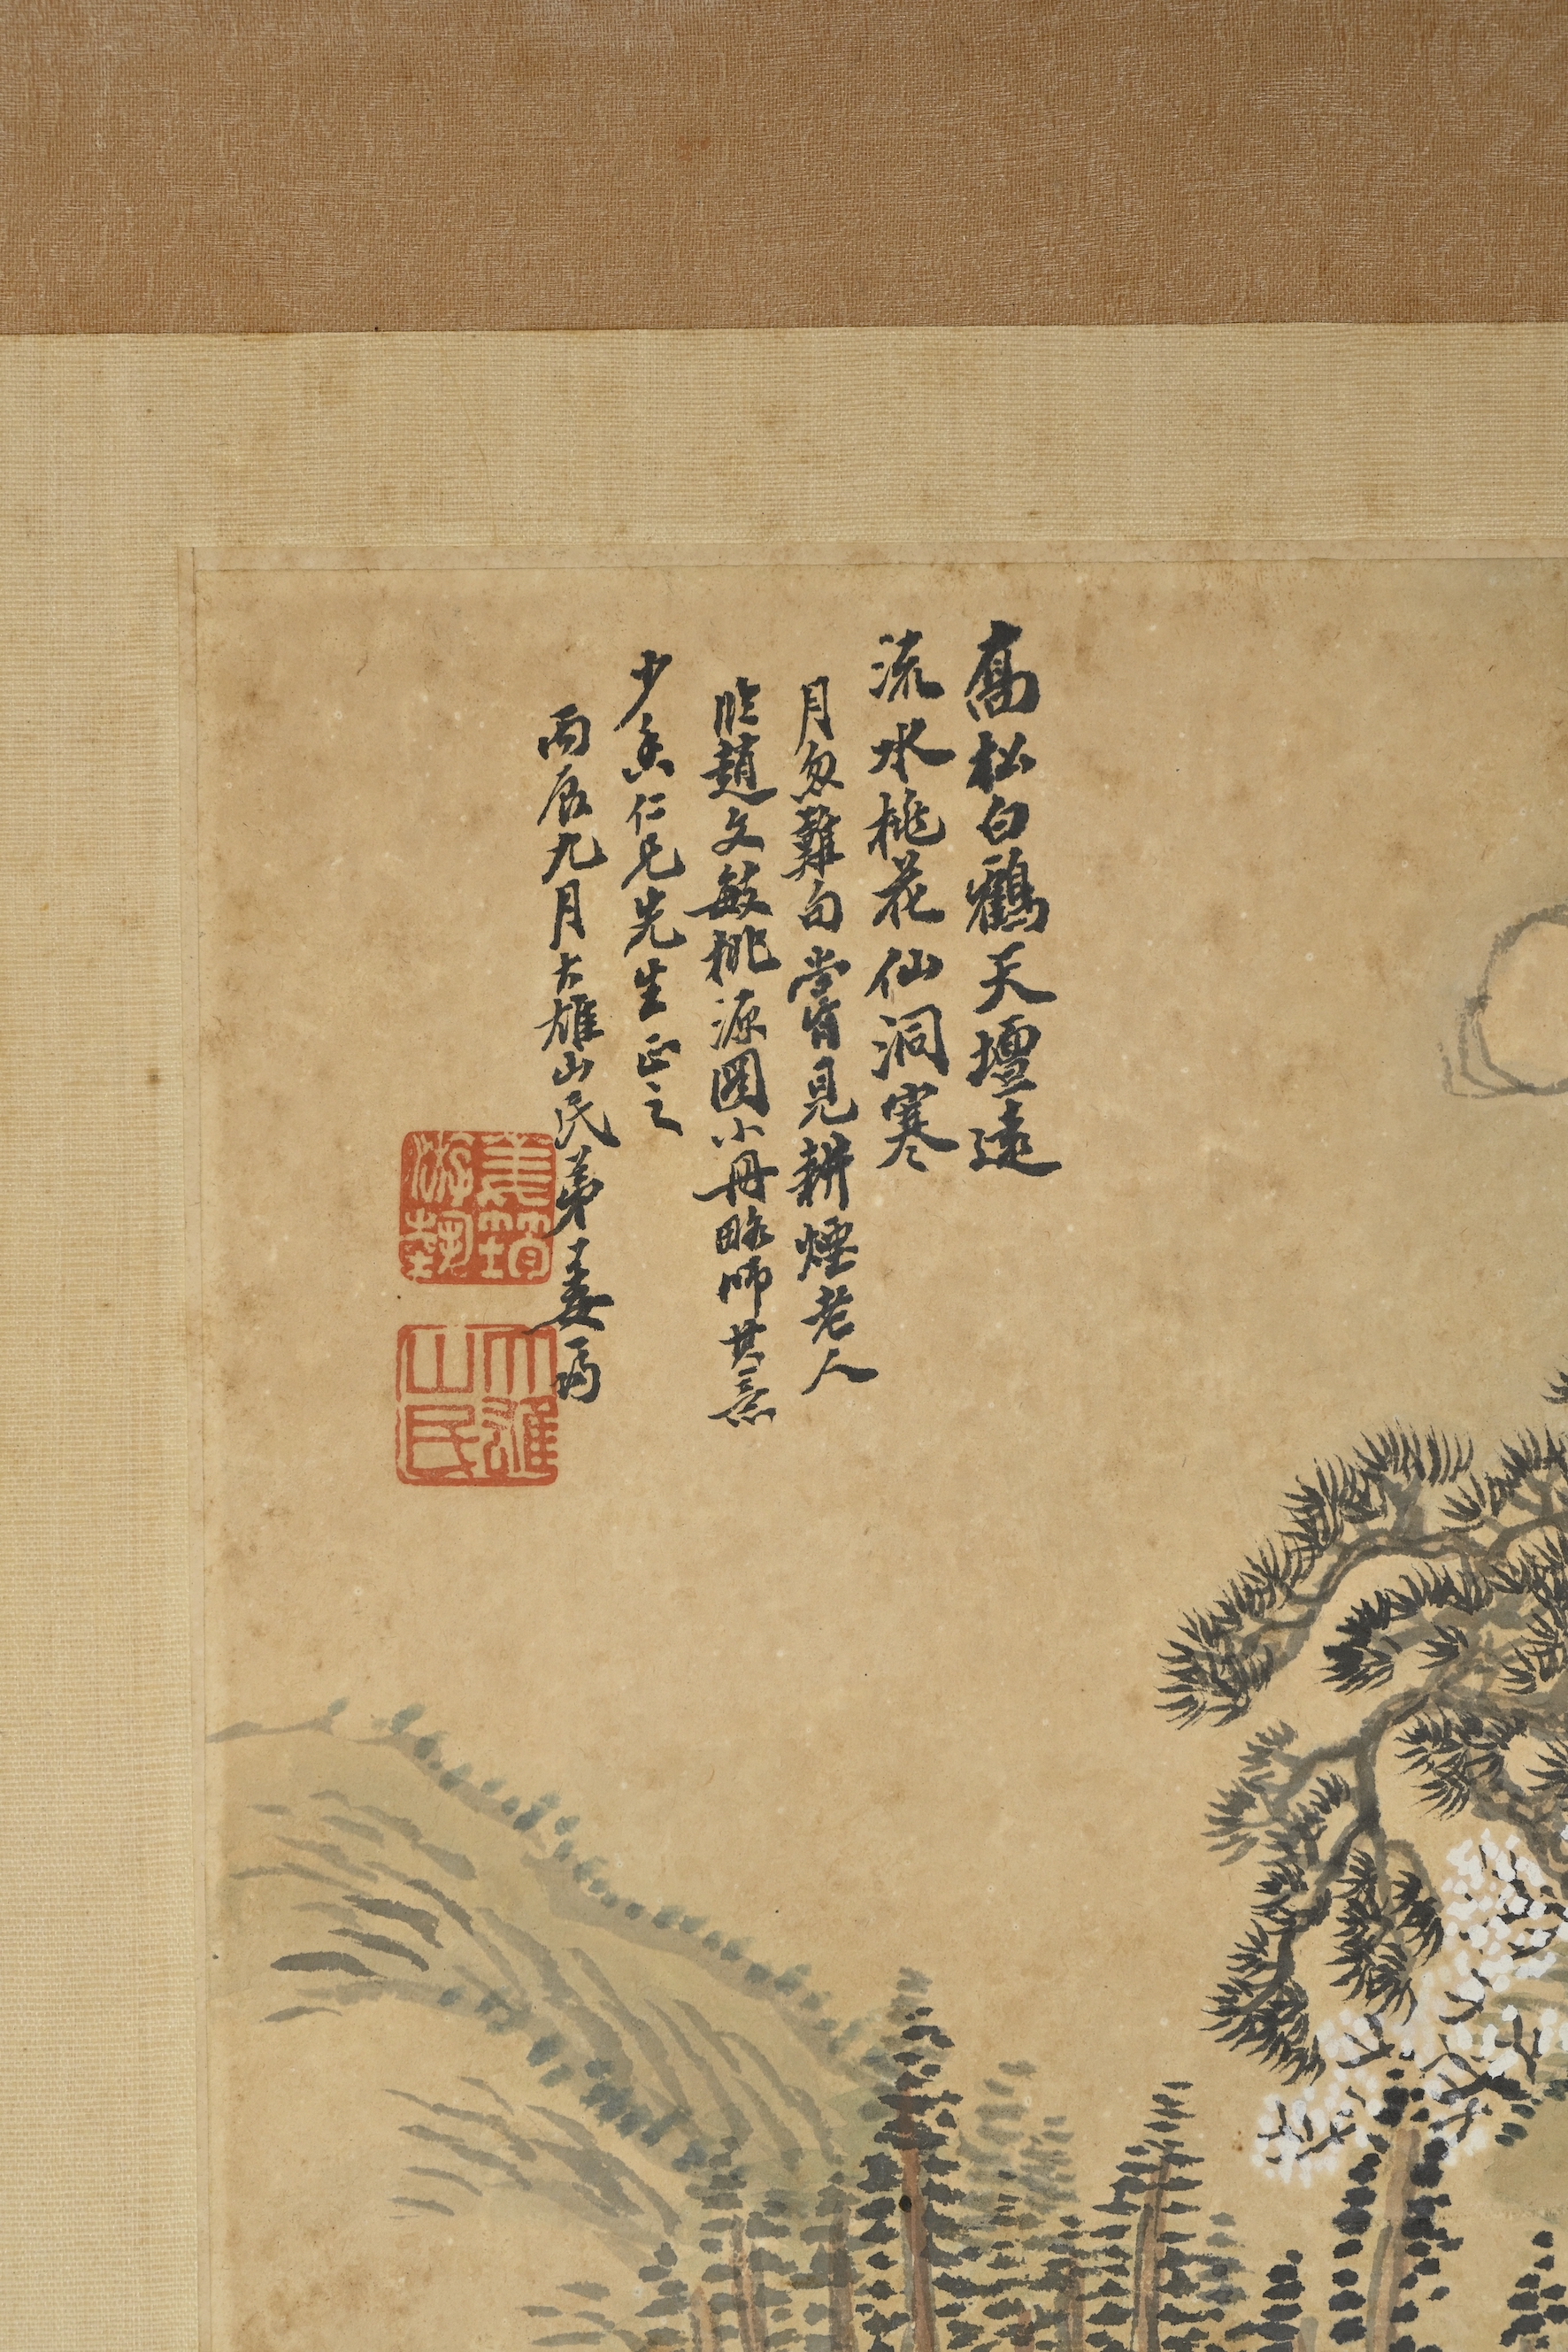 高松白鶴天壇遠
流水桃花仙洞寒
月忽難句嘗見耕煙老人
臨趙文敏桃源圖小冊略師其意
少香仁兄先生正之
丙辰九月大雄山民弟姜筠
姜筠游埶
大雄山民